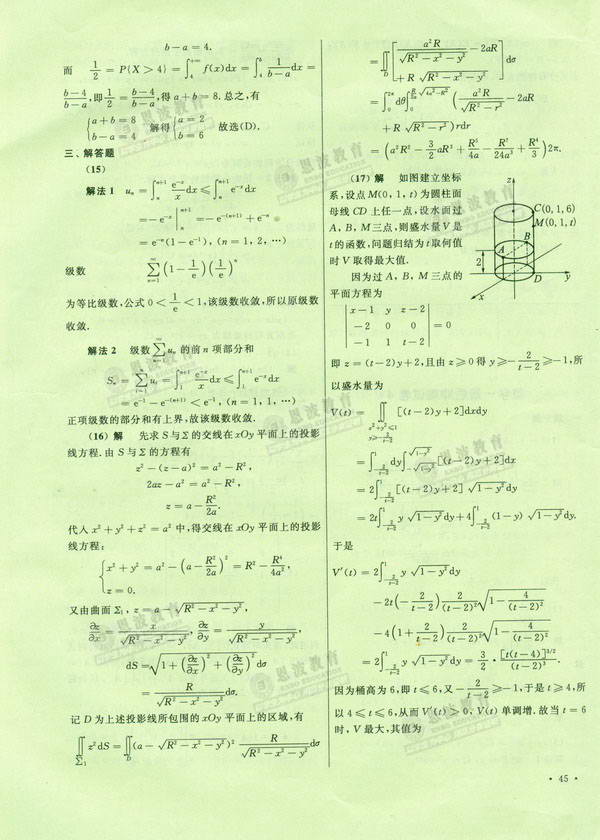 b−a=4.
而 1/2=P{X>4}=∫₄^{+∞}f(x)dx=∫₄^b 1/(b−a)dx=
(b−4)/(b−a),即 1/2=(b−4)/(b−a),得 a+b=8.总之,有
{a+b=8 b−a=4 解得{a=2 b=6 故选(D).
三、解答题
(15)
解法1 uₙ=∫ₙ^{n+1} e^{−x}/x dx≤∫ₙ^{n+1} e^{−x}dx
=−e^{−x}|ₙ^{n+1}=−e^{−(n+1)}+e^{−n}
=e^{−n}(1−e^{−1}),(n=1,2,…)
级数 ∑_{n=1}^∞(1−1/e)(1/e)^n
为等比级数,公式0<1/e<1,该级数收敛,所以原级数
收敛.
解法2 级数∑_{n=1}^∞uₙ的前n项部分和
Sₙ=∑_{i=1}^n uᵢ=∫₁^{n+1} e^{−x}/x dx≤∫₁^{n+1} e^{−x}dx
=e^{−1}−e^{−(n+1)}<e^{−1},(n=1,1,…)
正项级数的部分和有上界,故该级数收敛.
(16) 解 先求S与Σ的交线在xOy平面上的投影
线方程.由S与Σ的方程有
z²−(z−a)²=a²−R²,
2az−a²=a²−R²,
z=a−R²/2a.
代入x²+y²+z²=a²中,得交线在xOy平面上的投影
线方程:
{x²+y²=a²−(a−R²/2a)²=R²−R⁴/4a²,
z=0.
又由曲面Σ₁,z=a−√(R²−x²−y²),
∂z/∂x=x/√(R²−x²−y²),∂z/∂y=y/√(R²−x²−y²),
dS=√(1+(∂z/∂x)²+(∂z/∂y)²)dσ
=R/√(R²−x²−y²)dσ.
记D为上述投影线所包围的xOy平面上的区域,有
∬_{Σ₁}z²dS=∬_D(a−√(R²−x²−y²))² R/√(R²−x²−y²)dσ
=∬_D[a²R/√(R²−x²−y²)−2aR
+R√(R²−x²−y²)]dσ
=∫₀^{2π}dθ∫₀^{(R/2a)√(4a²−R²)}(a²R/√(R²−r²)−2aR
+R√(R²−r²))rdr
=(a²R²−3/2aR³+R⁵/4a−R⁷/24a³+R⁴/3)2π.
(17) 解 如图建立坐标
系,设点M(0,1,t)为圆柱面
母线CD上任一点,设水面过
A,B,M三点,则盛水量V是
t的函数,问题归结为t取何值
时V取得最大值.
因为过A,B,M三点的
平面方程为
z
C(0,1,6)
M(0,1,t)
B
A
2
D
y
x
|x−1 y z−2|
|−2 0 0|=0
|−1 1 t−2|
即z=(t−2)y+2,且由z≥0得y≥−2/(t−2)≥−1,所
以盛水量为
V(t)=∬_{x²+y²≤1, y≥−2/(t−2)}[(t−2)y+2]dxdy
=∫_{−2/(t−2)}^1dy∫_{−√(1−y²)}^{√(1−y²)}[(t−2)y+2]dx
=2∫_{−2/(t−2)}^1[(t−2)y+2]√(1−y²)dy
=2t∫_{−2/(t−2)}^1y√(1−y²)dy+4∫_{−2/(t−2)}^1(1−y)√(1−y²)dy.
于是
V′(t)=2∫_{−2/(t−2)}^1y√(1−y²)dy
−2t(−2/(t−2))2/(t−2)²√(1−4/(t−2)²)
−4(1+2/(t−2))2/(t−2)²√(1−4/(t−2)²)
=2∫_{−2/(t−2)}^1y√(1−y²)dy=3/2·[t(t−4)]^{3/2}/(t−2)³.
因为桶高为6,即t≤6,又−2/(t−2)≥−1,于是t≥4,所
以4≤t≤6,从而V′(t)>0,V(t)单调增.故当t=6
时,V最大,其值为
·45·
恩波教育